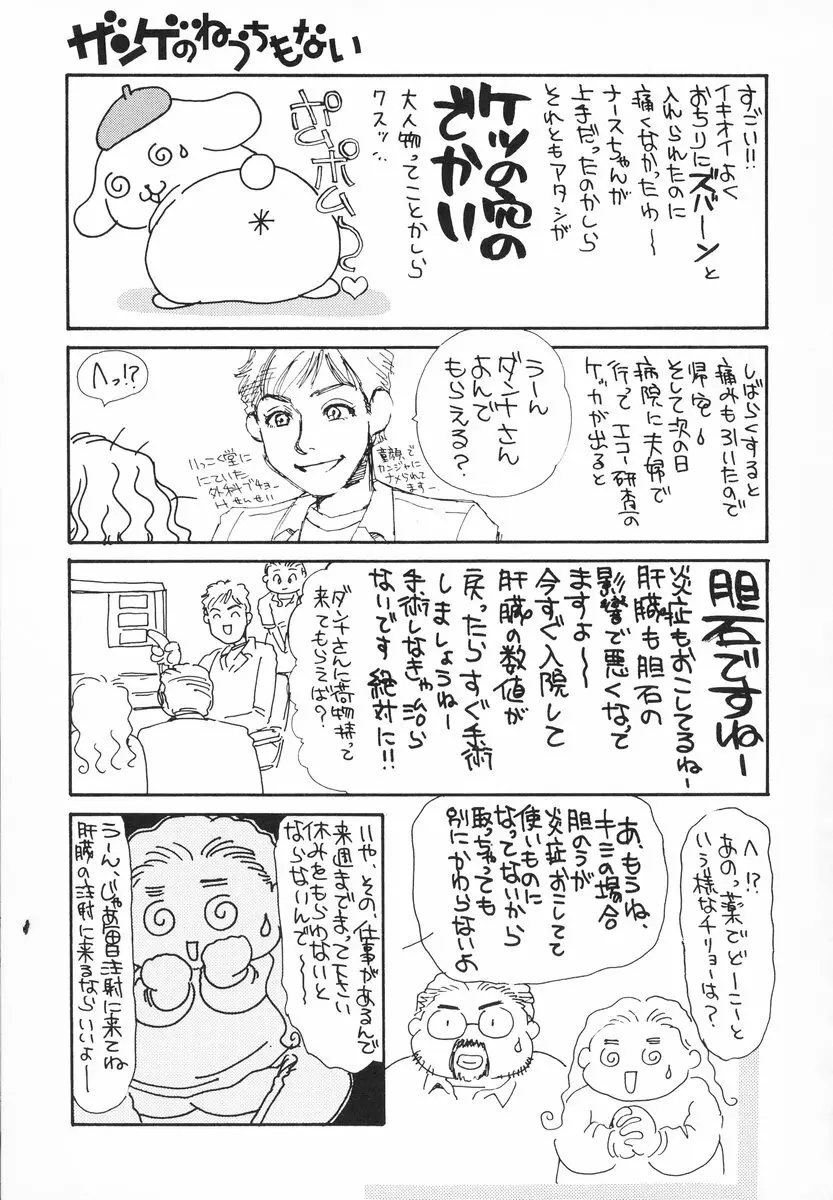 ザンゲのねうちもない
すごい!!
イキオイよく
おちりにズバーンと
入れられたのに
痛くなかったわ〜
ナースちゃんが
上手だったのかしら
それともアタシが
ケツの穴の
でかい
大人物ってことかしら
クスッ…
ポムポム〜♡
しばらくすると
痛みも引いたので
帰宅。
そして次の日
病院に夫婦で
行って エコー研査の
ケッカが出ると
うーん
ダンナさん
よんで
もらえる?
童顔で
カンジャに
ナメられて
ますー
いっこく堂に
にていた
外科ブチョー
へっ!?
胆石ですねー
炎症もおこしてるねー
肝臓も胆石の
影響で悪くなって
ますよ〜〜
今すぐ入院して
肝臓の数値が
戻ったらすぐ手術
しましょうねー
手術しなきゃ治ら
ないです 絶対に!!
ダンナさんに荷物持って
来てもらえば?
へ!?
あのっ薬でどーこーと
いう様なチリョーは?
あ、もうね、
キミの場合
胆のうが
炎症おこしてて
使いものに
なってないから
取っちゃっても
別にかわらないよ
いや、その、仕事があるんで
来週までまって下さい
休みをもらわないと
ならないんで〜〜
うーん、じゃあ毎日注射に来てね
肝臓の注射に来るならいいよ——